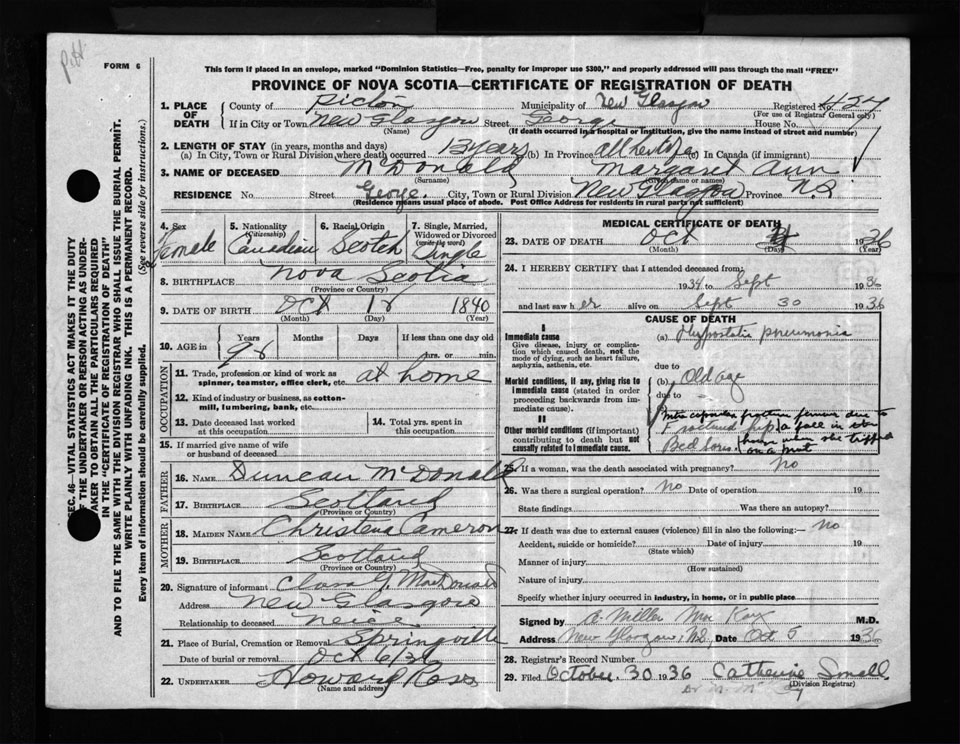 Pitt
FORM 6
This form if placed in an envelope, marked "Dominion Statistics—Free, penalty for improper use $300," and properly addressed will pass through the mail "FREE"
PROVINCE OF NOVA SCOTIA—CERTIFICATE OF REGISTRATION OF DEATH
1. PLACE OF DEATH County of Pictou Municipality of New Glasgow Registered No. 424
(For use of Registrar General only)
If in City or Town New Glasgow Street George House No.
(Name) (If death occurred in a hospital or institution, give the name instead of street and number)
2. LENGTH OF STAY (in years, months and days)
(a) In City, Town or Rural Division where death occurred 15 years (b) In Province all her life (c) In Canada (if immigrant)
3. NAME OF DECEASED McDonald Margaret Ann
(Surname) (Given name or names)
RESIDENCE No. Street George. City, Town or Rural Division New Glasgow Province N.S
(Residence means usual place of abode. Post Office Address for residents in rural parts not sufficient)
4. Sex Female
5. Nationality (Citizenship) Canadian
6. Racial Origin Scotch
7. Single, Married, Widowed or Divorced (write the word) Single
8. BIRTHPLACE Nova Scotia
(Province or Country)
9. DATE OF BIRTH Oct 18 1840
(Month) (Day) (Year)
10. AGE in Years Months Days If less than one day old
hrs. or min.
OCCUPATION
11. Trade, profession or kind of work as spinner, teamster, office clerk, etc. at home
12. Kind of industry or business, as cotton-mill, lumbering, bank, etc.
13. Date deceased last worked at this occupation
14. Total yrs. spent in this occupation
15. If married give name of wife or husband of deceased
FATHER
16. NAME Duncan McDonald
17. BIRTHPLACE Scotland
(Province or Country)
MOTHER
18. MAIDEN NAME Christena Cameron
19. BIRTHPLACE Scotland
(Province or Country)
20. Signature of informant Clara G. MacDonald
Address New Glasgow
Relationship to deceased neice
21. Place of Burial, Cremation or Removal Springville
Date of burial or removal Oct 6/36
22. UNDERTAKER Howard Ross
(Name and address)
MEDICAL CERTIFICATE OF DEATH
23. DATE OF DEATH Oct 1936
(Month) (Day) (Year)
24. I HEREBY CERTIFY that I attended deceased from:
1934 to Sept 1936
and last saw her alive on Sept 30 1936
CAUSE OF DEATH
I
Immediate cause
Give disease, injury or complication which caused death, not the mode of dying, such as heart failure, asphyxia, asthenia, etc.
(a) Hypostatic pneumonia
due to
Morbid conditions, if any, giving rise to immediate cause (stated in order proceeding backwards from immediate cause).
(b) Old age
due to
(c)
II
Other morbid conditions (if important) contributing to death but not causally related to immediate cause.
Intra capsular fracture femur due to
Fractured hip a fall in
Bed sores. house when she tripped
on a mat
25. If a woman, was the death associated with pregnancy? no
26. Was there a surgical operation? No Date of operation 19
State findings Was there an autopsy?
27. If death was due to external causes (violence) fill in also the following:— no
Accident, suicide or homicide? Date of injury 19
(State which)
Manner of injury
(How sustained)
Nature of injury
Specify whether injury occurred in industry, in home, or in public place
Signed by A. Miller MacKay M.D.
Address New Glasgow, N.S. Date Oct 5 1936
28. Registrar's Record Number
29. Filed October. 30 1936 Catherine Small
(Division Registrar)
SEC. 46—VITAL STATISTICS ACT MAKES IT THE DUTY OF THE UNDERTAKER OR PERSON ACTING AS UNDERTAKER TO OBTAIN ALL THE PARTICULARS REQUIRED IN THE "CERTIFICATE OF REGISTRATION OF DEATH"
AND TO FILE THE SAME WITH THE DIVISION REGISTRAR WHO SHALL ISSUE THE BURIAL PERMIT.
WRITE PLAINLY WITH UNFADING INK. THIS IS A PERMANENT RECORD.
Every item of information should be carefully supplied. (See reverse side for instructions.)